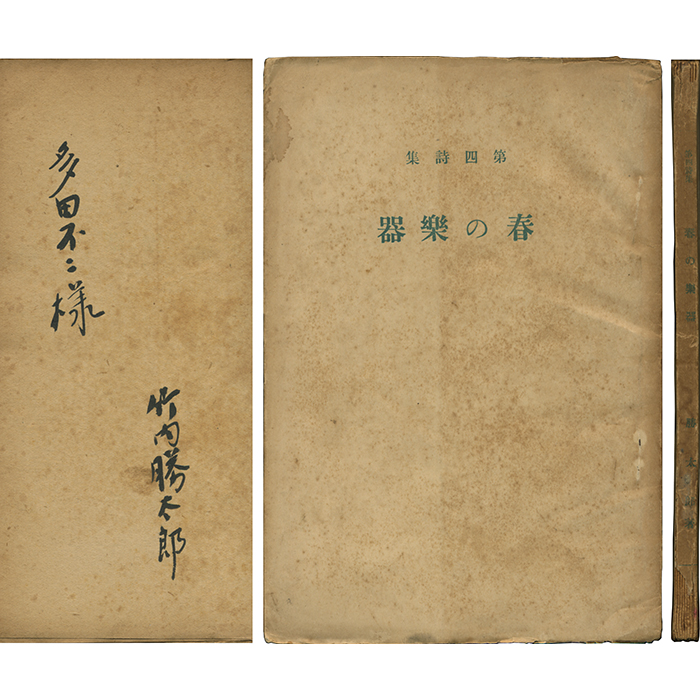 多田不二様
竹内勝太郎
第四詩集
春の樂器
春の樂器